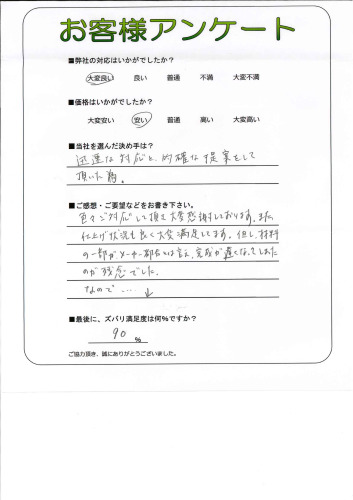 お客様アンケート
■弊社の対応はいかがでしたか?
大変良い 良い 普通 不満 大変不満
■価格はいかがでしたか?
大変安い 安い 普通 高い 大変高い
■当社を選んだ決め手は?
迅速な対応と、的確な提案をして
頂いた為。
■ご感想・ご要望などをお書き下さい。
色々ご対応して頂き大変感謝しております。また
仕上げ状況も良く大変満足してます。但し、材料
の一部がメーカー都合とは言え、完成が遅くなってしまった
のが残念でした。
なので‥‥↓
■最後に、ズバリ満足度は何%ですか?
90 %
ご協力頂き、誠にありがとうございました。